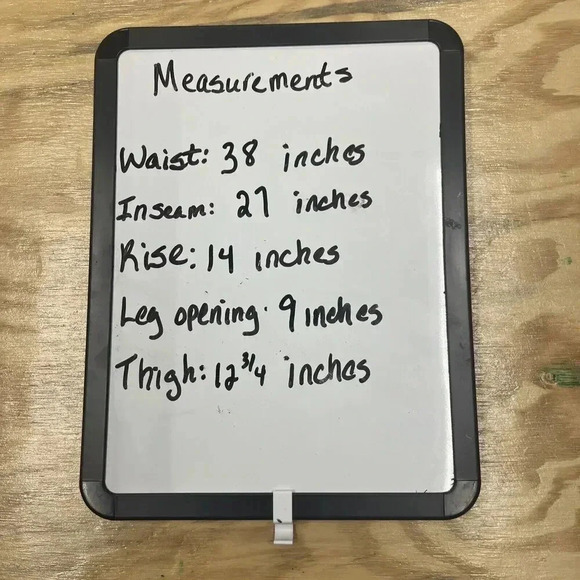 Measurements
Waist: 38 inches
Inseam: 27 inches
Rise: 14 inches
Leg opening: 9 inches
Thigh: 12 3/4 inches